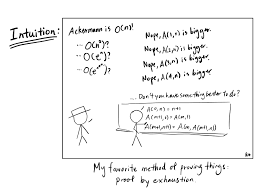 Intuition:
Ackermann is O(n)!
Nope, A(1,n) is bigger.
... O(n²)?
Nope, A(2,n) is bigger.
... O(eⁿ)?
Nope, A(3,n) is bigger.
Nope, A(4,n) is bigger.
... Don't you have something better to do?
A(0,n) = n+1
A(m+1,0) = A(m,1)
A(m+1,n+1) = A(m, A(m+1,n))
My favorite method of proving things:
proof by exhaustion